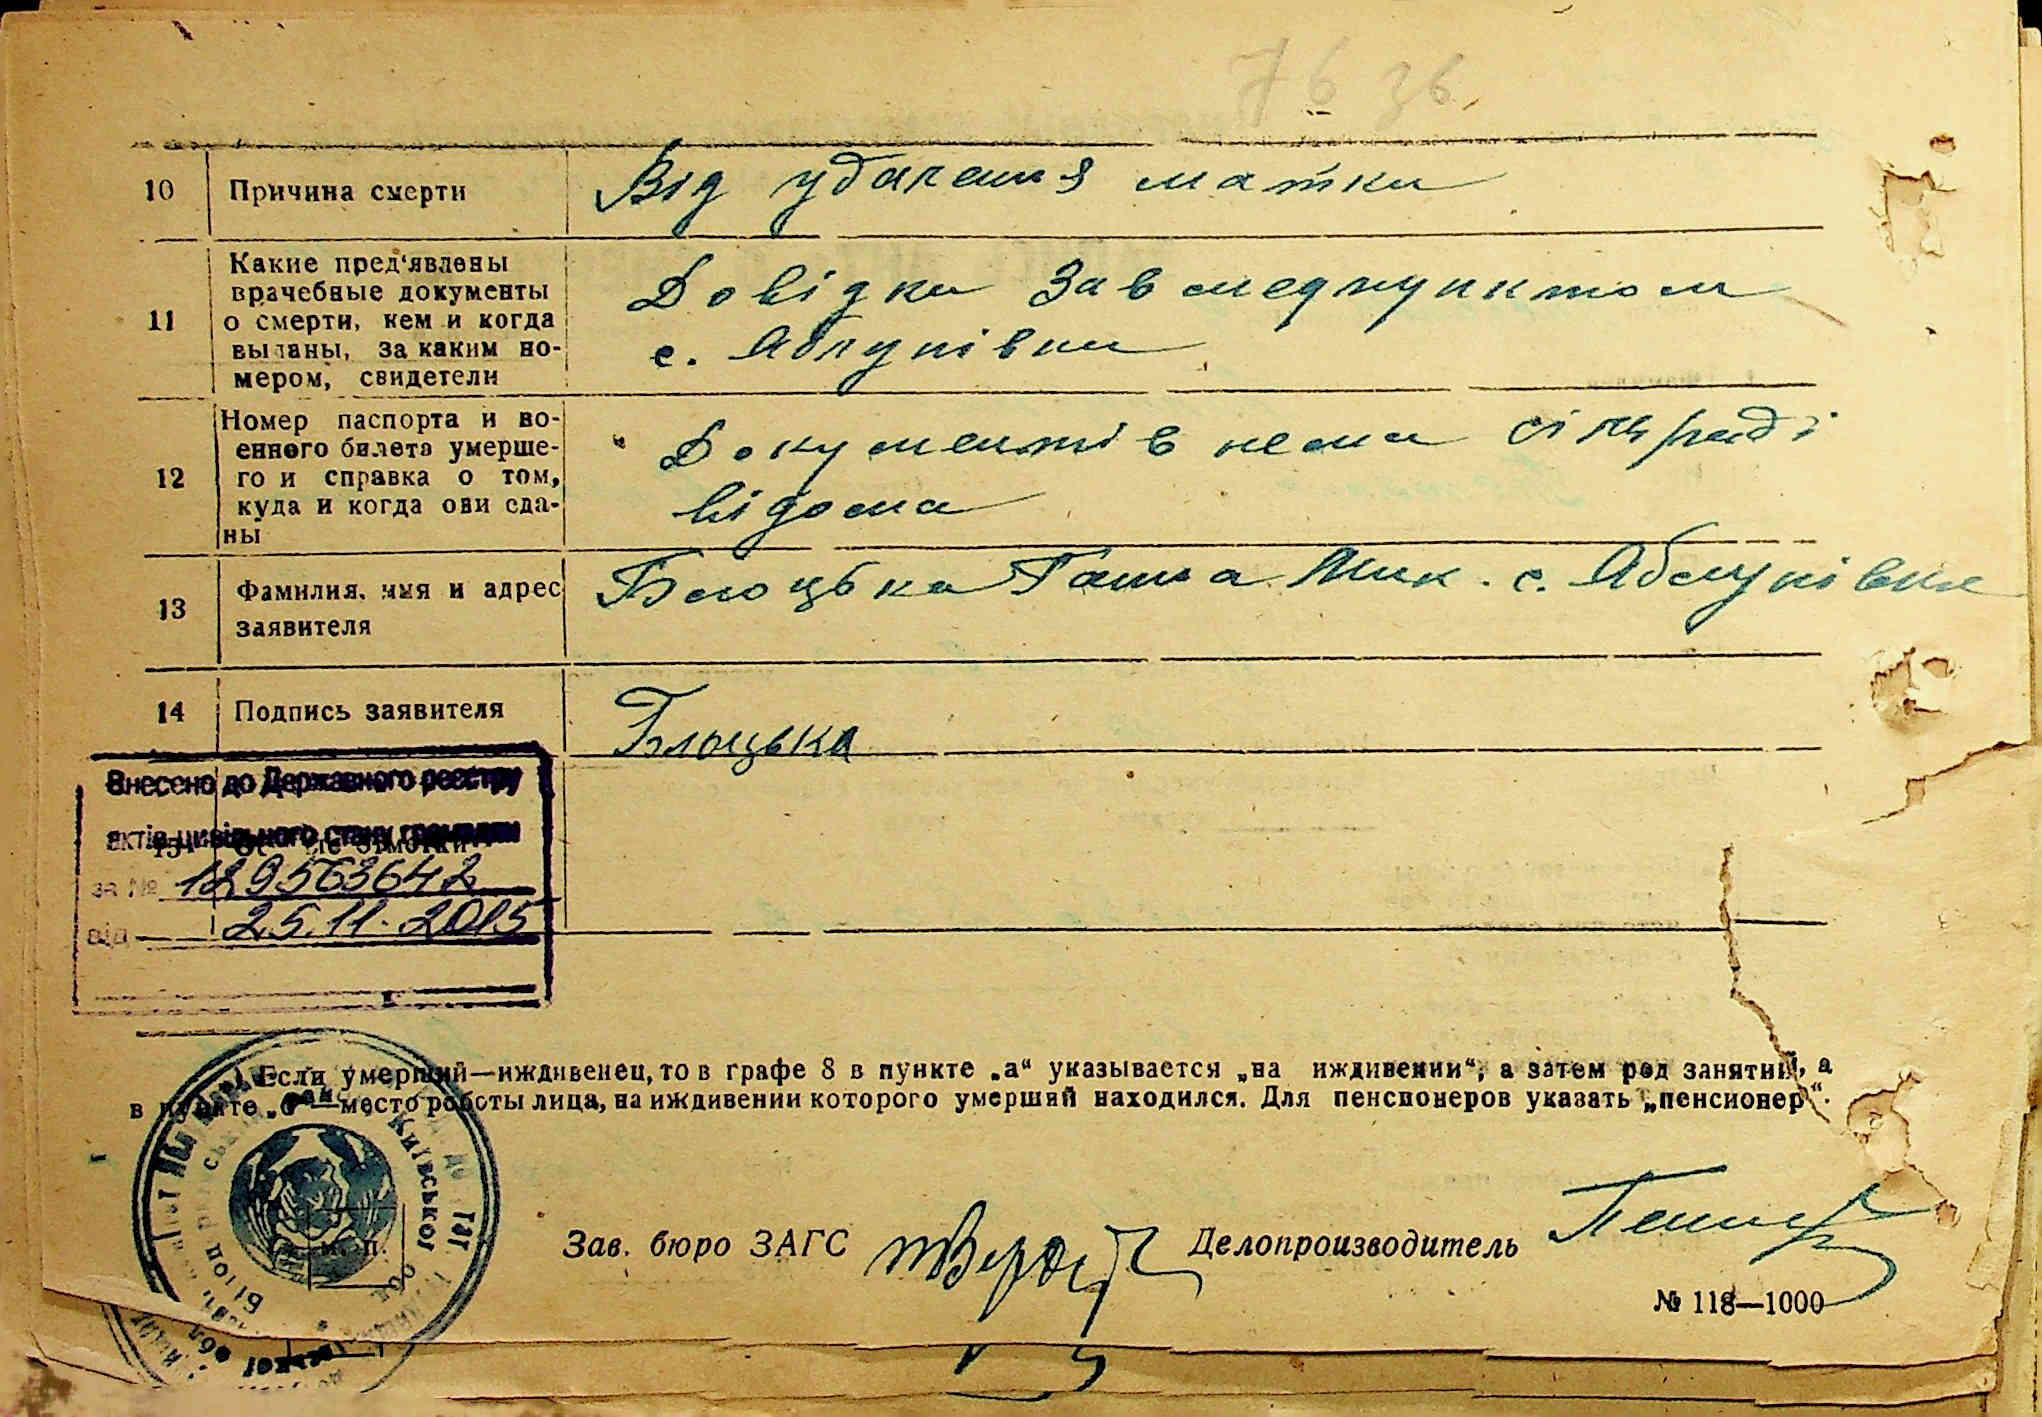 76 зв.
10 Причина смерти Від удалення матки
11 Какие пред'явлены
врачебные документы
о смерти, кем и когда
выданы, за каким но-
мером, свидетели
Довідка Зав медпунктом
с. Яблунівки
12 Номер паспорта и во-
енного билета умерше-
го и справка о том,
куда и когда они сда-
ны
Документів нема сільраді
відома
13 Фамилия, имя и адрес
заявителя
Блоцька Ганна Мик. с. Яблунівка
14 Подпись заявителя Блоцька
Внесено до Державного реєстру
актів цивільного стану громадян
за № 129563642
від 25.11.2015
Если умерший—иждивенец, то в графе 8 в пункте „а“ указывается „на иждивении“, а затем род занятий, а
в пункте „б“—место работы лица, на иждивении которого умерший находился. Для пенсионеров указать „пенсионер“.
Київської
м. п.
Зав. бюро ЗАГС Делопроизводитель
№ 118—1000